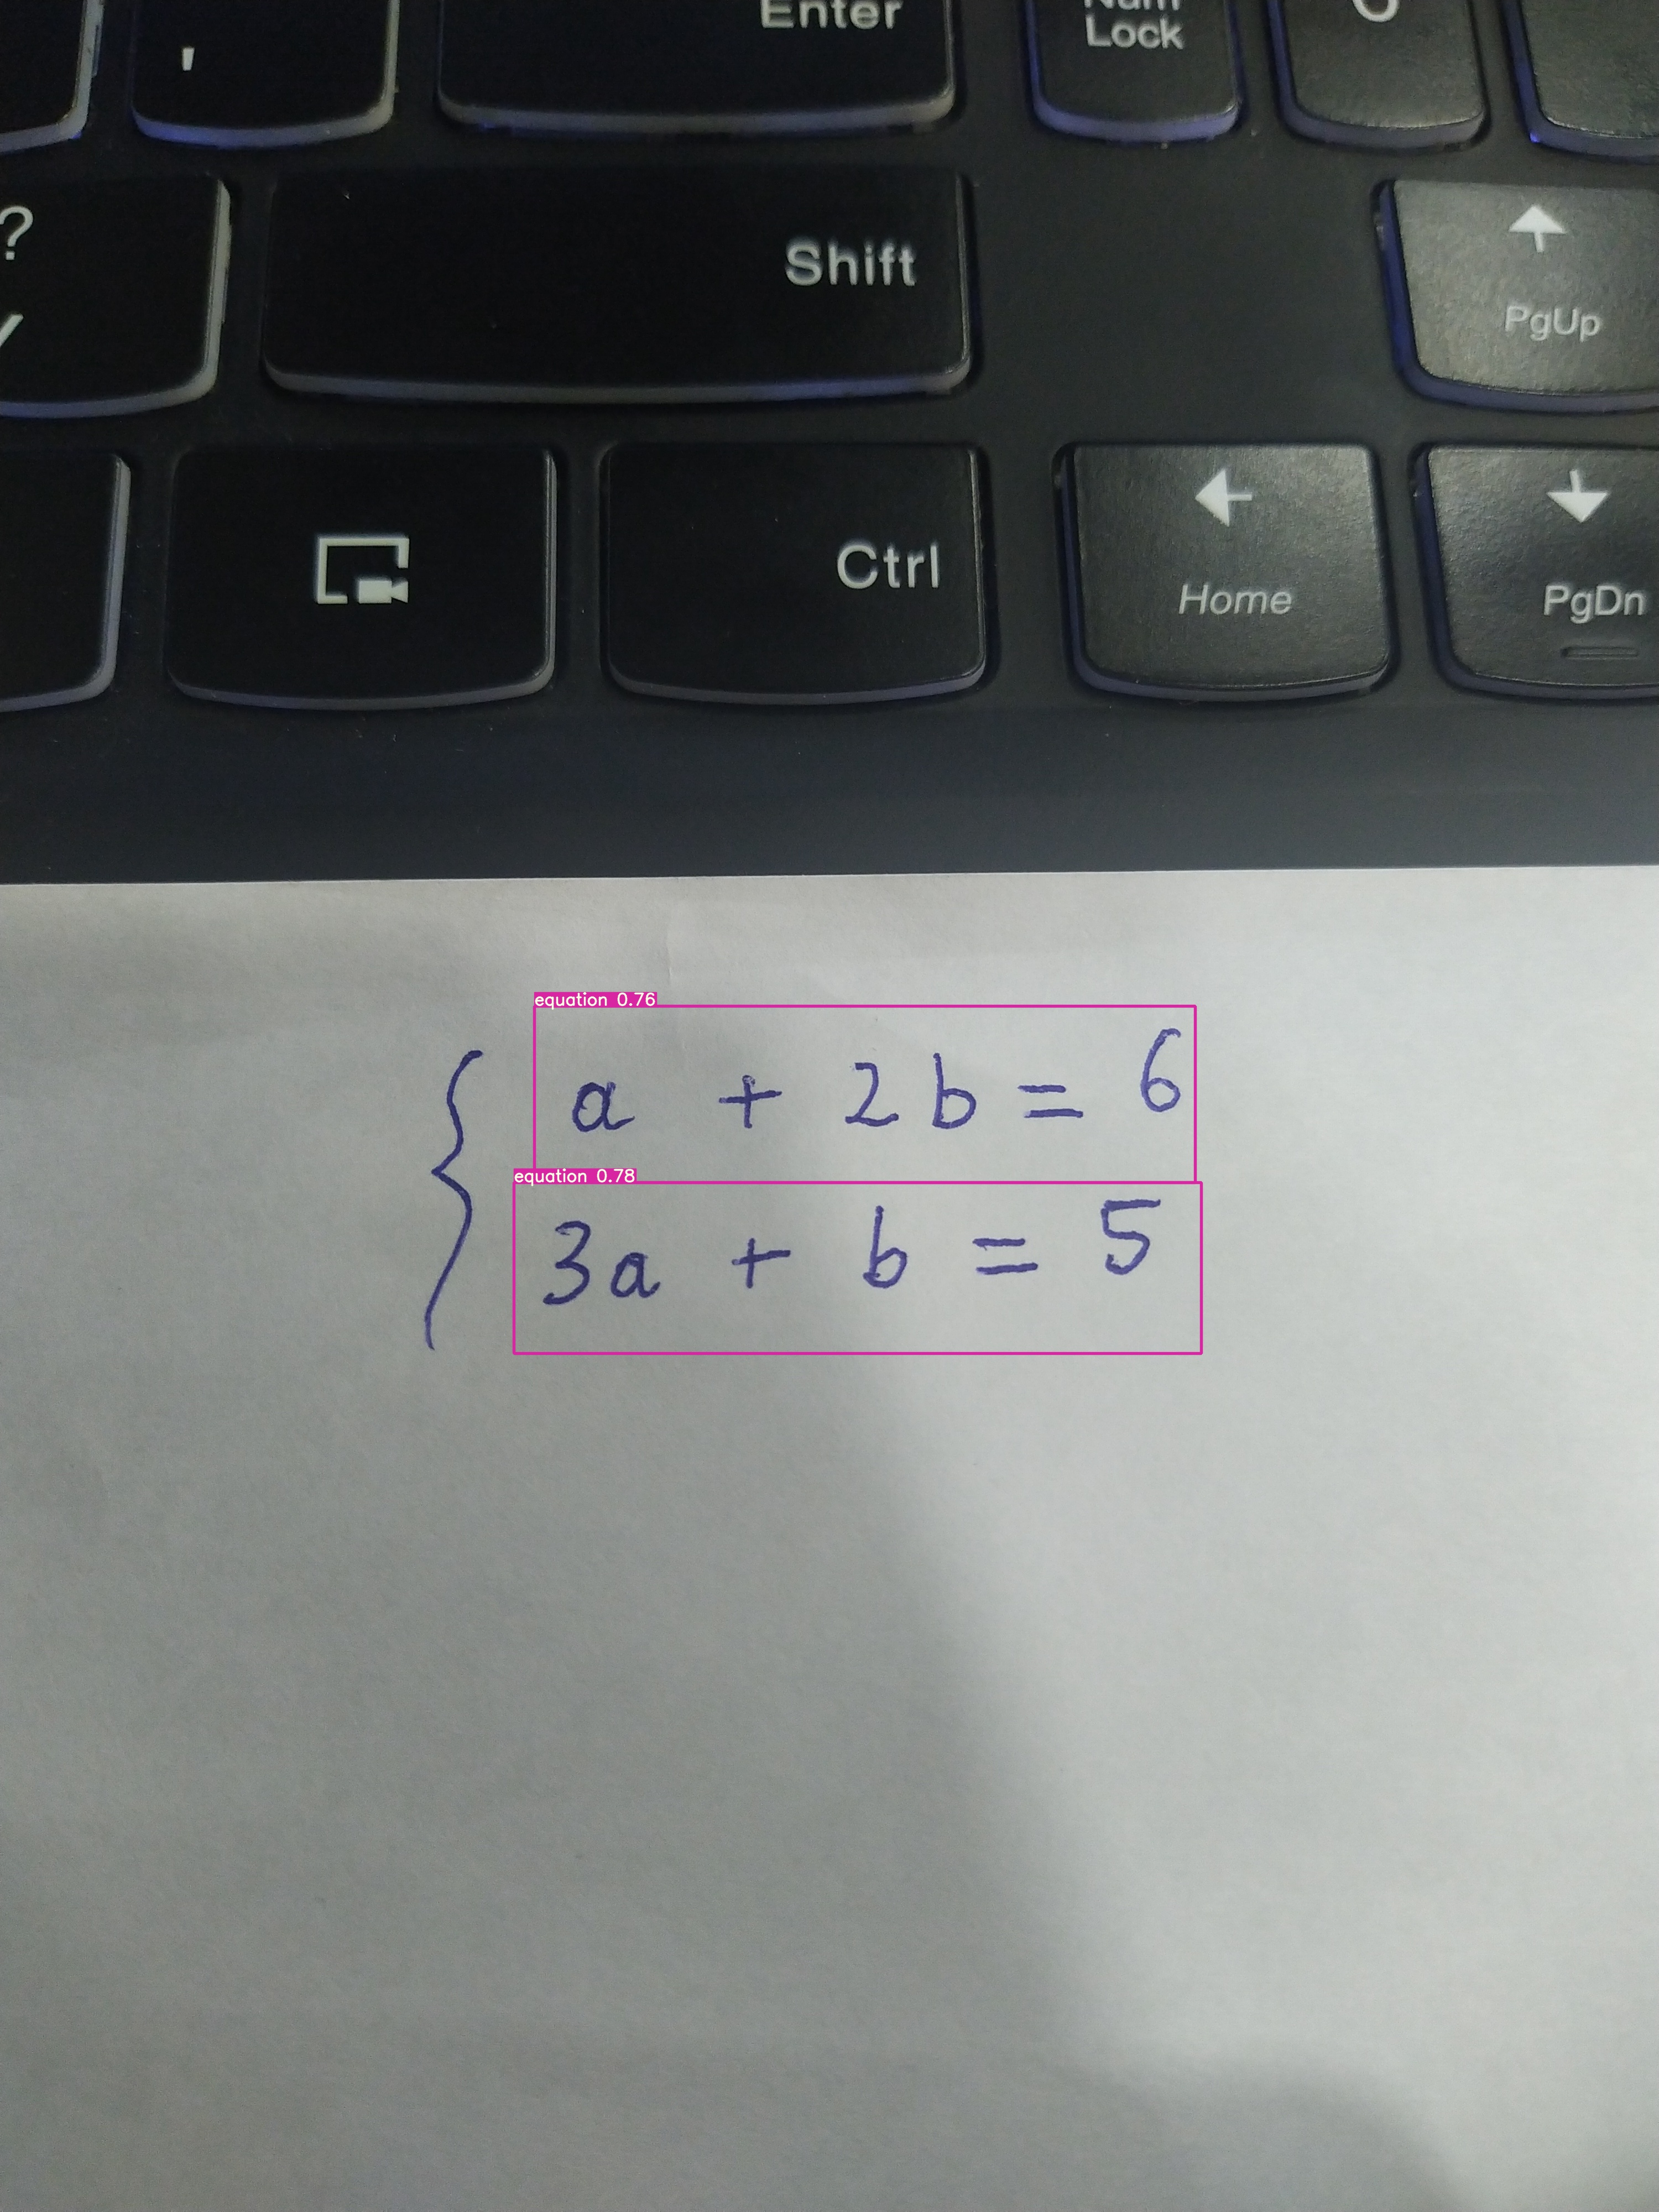 Enter
Num
Lock
'
?
Shift
PgUp
Ctrl
Home
PgDn
equation 0.76
a + 2b = 6
equation 0.78
3a + b = 5